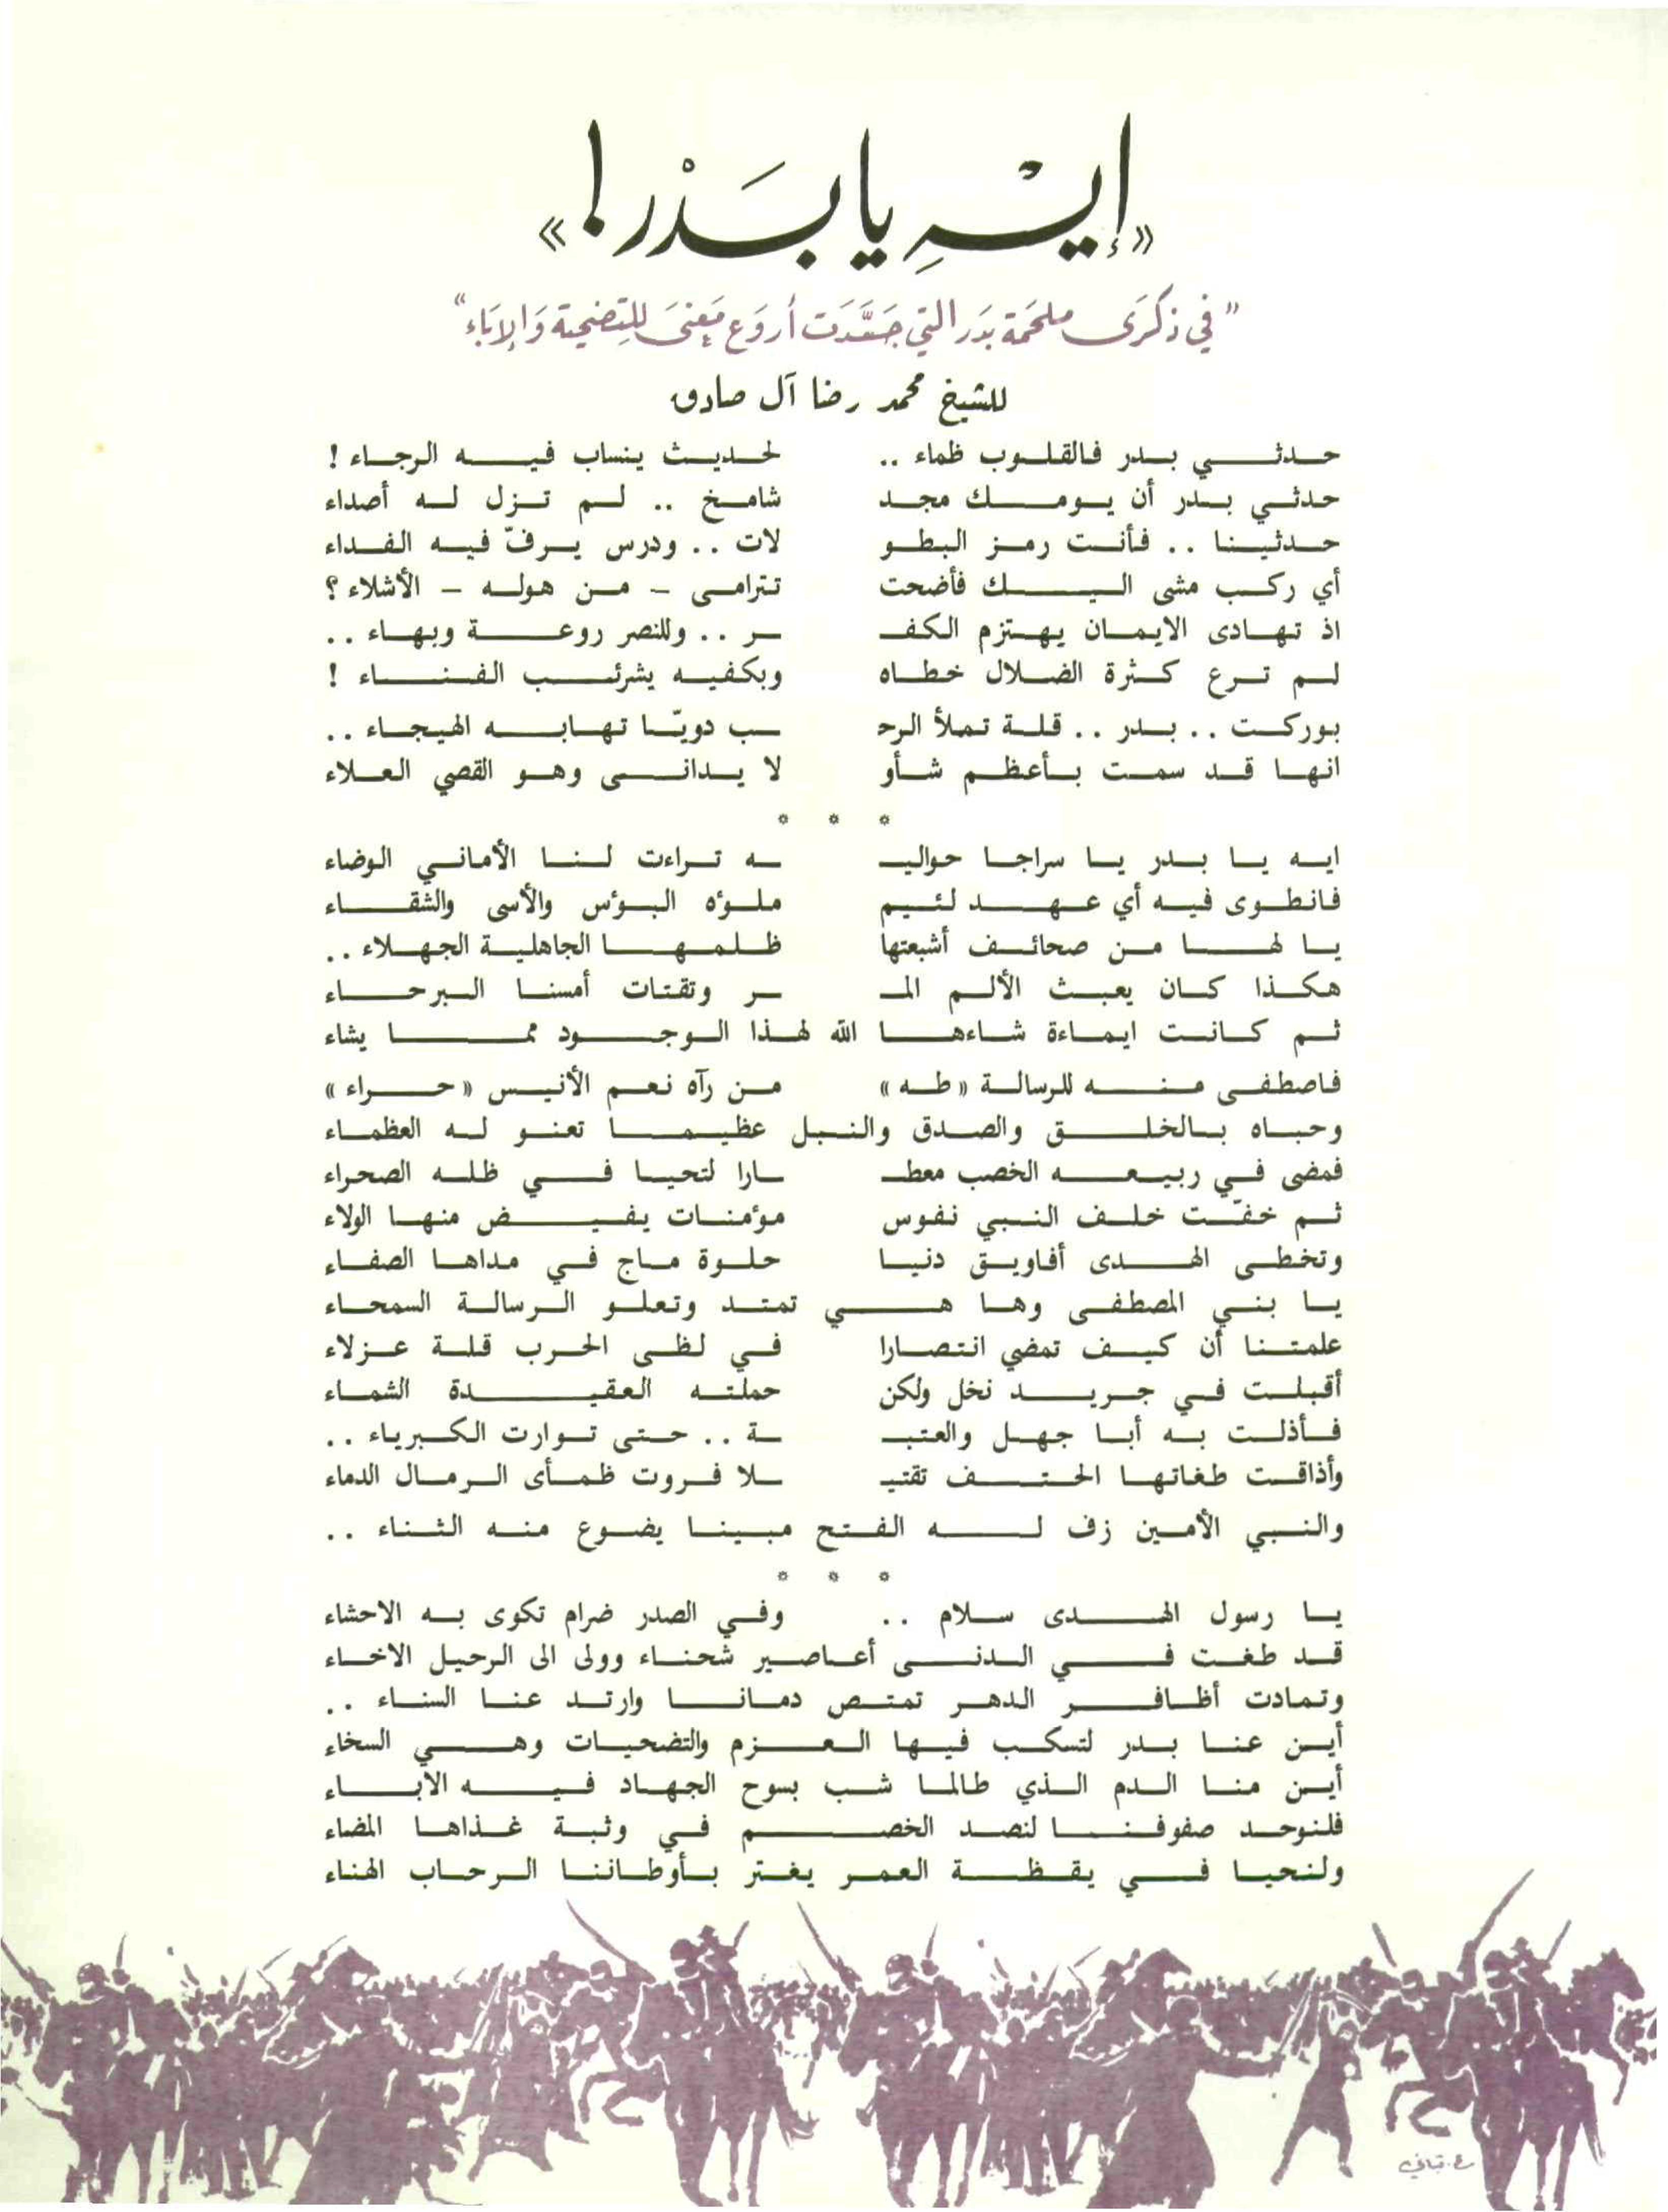 «إيـهِ يا بَدْر!»
"في ذكرَى ملحمَة بَدَر التي جَسَّدَت أروَع مَعنىَ للتِضحيّة وَالإبَاء"
للشيخ محمد رضا آل صادق
حدثي بدر فالقلوب ظماء .. لحديث ينساب فيه الرجاء !
حدثي بدر أن يومك مجد شامخ .. لم تزل له أصداء
حدثينا .. فأنت رمز البطو لات .. ودرس يرفّ فيه الفداء
أي ركب مشى اليك فأضحت تترامى - من هوله - الأشلاء ؟
اذ تهادى الايمان يهتزم الكفـ ـر .. وللنصر روعة وبهاء ..
لم ترع كثرة الضلال خطاه وبكفيه يشرئب الفناء !
بوركت .. بدر .. قلة تملأ الرحـ ـب دويّا تهابه الهيجاء ..
انها قد سمت بأعظم شأو لا يدانى وهو القصي العلاء
* * *
ايه يا بدر يا سراجا حواليـ ـه تراءت لنا الأماني الوضاء
فانطوى فيه أي عهد لئيم ملؤه البؤس والأسى والشقاء
يا لها من صحائف أشبعتها ظلمها الجاهلية الجهلاء ..
هكذا كان يعبث الألم المـ ـر وتقتات أمسنا البرحاء
ثم كانت ايماءة شاءها الله لهذا الوجود مما يشاء
فاصطفى منه للرسالة «طه» من رآه نعم الأنيس «حراء»
وحباه بالخلق والصدق والنبل عظيما تعنو له العظماء
فمضى في ربيعه الخصب معطـ ـارا لتحيا في ظله الصحراء
ثم خفّت خلف النبي نفوس مؤمنات يفيض منها الولاء
وتخطى الهدى أفاويق دنيا حلوة ماج في مداها الصفاء
يا بني المصطفى وها هي تمتد وتعلو الرسالة السمحاء
علمتنا أن كيف تمضي انتصارا في لظى الحرب قلة عزلاء
أقبلت في جريد نخل ولكن حملته العقيدة الشماء
فأذلت به أبا جهل والعتبـ ـة .. حتى توارت الكبرياء ..
وأذاقت طغاتها الحتف تقتيـ ـلا فروت ظمأى الرمال الدماء
والنبي الأمين زف له الفتح مبينا يضوع منه الثناء ..
* * *
يا رسول الهدى سلام .. وفي الصدر ضرام تكوى به الاحشاء
قد طغت في الدنى أعاصير شحناء وولى الى الرحيل الاخاء
وتمادت أظافر الدهر تمتص دمانا وارتد عنا السناء ..
أين عنا بدر لتسكب فيها العزم والتضحيات وهي السخاء
أين منا الدم الذي طالما شب بسوح الجهاد فيه الاباء
فلنوحد صفوفنا لنصد الخصم في وثبة غذاها المضاء
ولنحيا في يقظة العمر يغتر بأوطاننا الرحاب الهناء